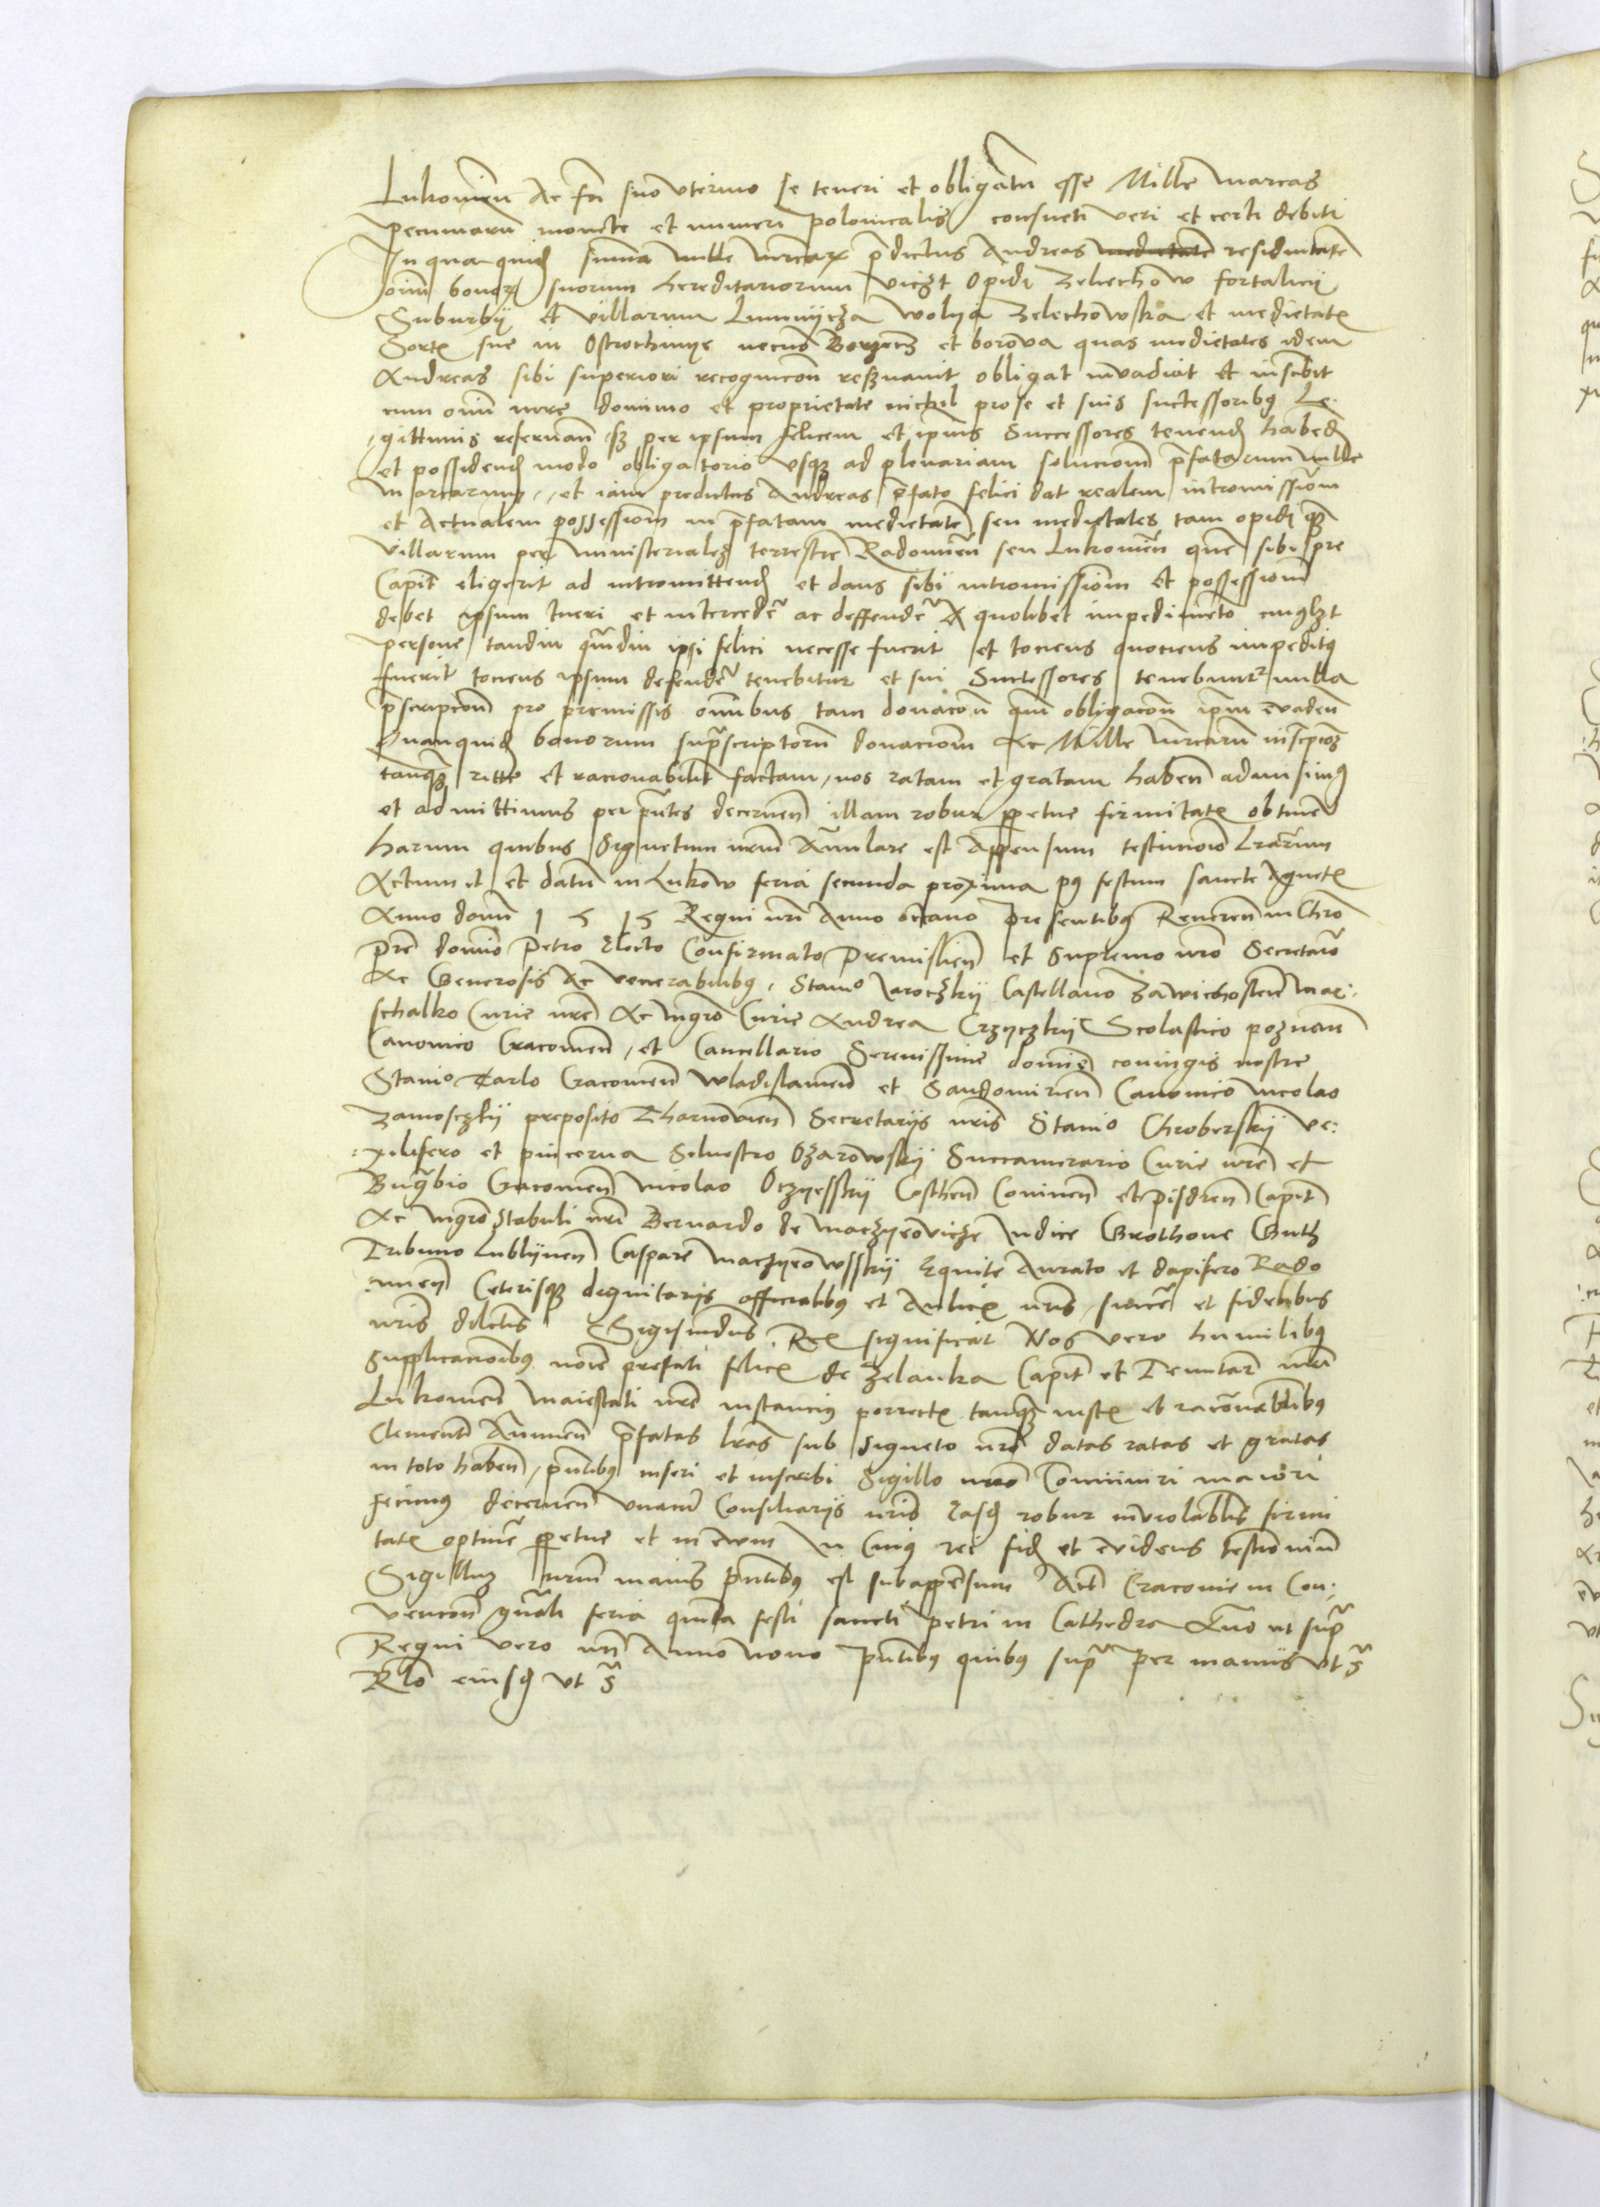 Lukomien̄ Ac frī suo vterino se teneri et obligatū esse Mille marcas
pecuniarū monete et numeri polonicalis consueti veri et certi debiti
In qua quid sum̄a mille mrcar̄ p̄dictus Andreas medietatē residuitatē
oīm bonor̄ suorum hereditariorum viczt Opidi Zelechow fortalicii
Suburbij et villarum Lumnijcza Wolija Zelechowska et medietatē
Sortē sue in Ostrochinye necnō et borowa quas medietates idem
Andreas sibi superiori recognicōn reservauit obligat invadiat et inscribit
cum om̄i iure dominio et proprietate nichil pro se et suis successoribus Le-
gittimis reservan̄ sz per ipsum felicem et ipius Successores tenend habed
et possidend modo obligatorio vsqz ad plenariam solucionem p̄fatarum mille
marcarum, et iam predictus Andreas p̄fato felici dat realem intromissionem
et Actualem possessionem in p̄fatam medietatē seu medietates tam opidi qz
villarum per ministerialez terrestrē Radomien̄ seu Lukomien̄ quē sibi pre
Capit̄ eligerit ad intromittend et dans sibi intromissionem et possessionem
debet ipsum tueri et intercedēr ac deffendēr a quolibet impedimēto cuiuslzt
persone tamdiu qm̄diu ipsi felici necesse fuerit et tociens quociens impeditus
fuerit tociens ipsum defendēr tenebitur et sui Successores tenebunt nulla
p̄scripcōn pro premissis omnibus tam donacōn qm̄ obligacōn ip̄m evaden̄
Quamquid bonorum sup̄scriptorū donacionem Ac Mille mrcarū inscpiōz
tanqz ritte et racionabilit factam, nos ratam et gratam haben̄ admisimus
et admittimus per p̄ntes decernen̄ illam robur ppetue firmitatē obtinēr
harum quibus Signetum nrm Anulare est Appensum testimonio Lrārum
Actum et datū in Lukow feria secunda proxima pꝯ festum sancte Agnetē
Anno domī 1515 Regni nrī Anno octauo presentibus Reueren̄ in Chrō
pr̄e domīo Petro Electo Confirmato Premislien̄ et Supremo nrō Secretario
Ac Generosis Ac venerabilibus, Stanio Jaroczkij Castellano Zawichosteñ Mar-
schalko Curie nrē Ac mgrō Curie Andrea Crzyczkij Scolastico poznan̄
Canonico Cracouien̄, et Cancellario Serenissime domīe coniugis nostre
Stanio Tarlo Cracouien̄ Wladislauien̄ et Sandomirien̄ Canonico Nicolao
Zamosczkij preposito Tharnouien̄ Secretarijs nrīs Stanio Chroberskij ve-
xilifero et pincerna Siluestro Ozarowskij Succamerario Curie nrē et
Burgbio Cracouien̄ Nicolao Oczyesskij Costhen̄ Coninen̄ et Pisdren̄ Capit̄
Ac mgrō Stabuli nrī Bernardo de Maczyeoviche Judice Grothone Guth
Tribuno Lublynen̄ Caspare Maczyeowsskij Equite Aurato et dapifero Rado
mien̄ Ceterisqz dignitarijs officialibus et Aulicis nrīs, sincer̄ et fidelibus
nrīs dilectis Sigismūdus Rex significat Nos vero humilibus
supplicacionibus noīe prefati felicis de Zelanka Capit̄ et Tenutar̄ nrī
Lukomien̄ maiestati nrē instancius porrectis tanqz iustis et racōnabilibus
Clement Annuen̄ p̄fatas lrās sub signeto nrō datas ratas et gratas
in toto haben̄, p̄ntibus inseri et inscribi Sigillo nrō Com̄uniri maiori
fecimus decernen̄ vnacū Consiliarijs nrīs Easd robur inviolabilis firmi
tatis optinēr ppetue et in ewm In Cuius rei fid et evidens testimoniū
Sigillum nrm maius p̄ntibus est subappensum Act̄ Cracouie in Con-
vencōn gn̄ali feria quinta festi sancti petri in Cathedra Anno ut sup̄
Regni vero nrī Anno nono p̄ntibus quibus sup̄ per manus vt s̄
Rlō eiusd vt s̄